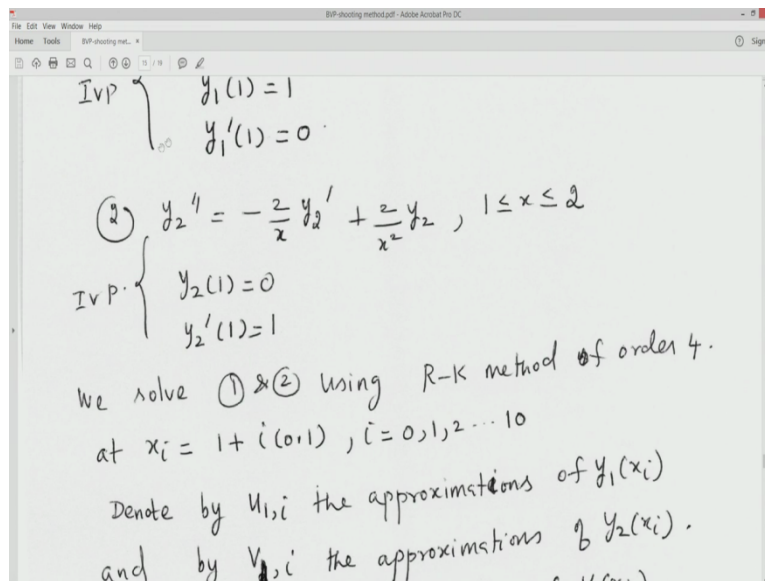 BVP-shooting method.pdf - Adobe Acrobat Pro DC
File Edit View Window Help
Home Tools BVP-shooting met... × Sign
15 / 19
IVP { y₁(1) = 1
y₁'(1) = 0
② y₂'' = -2/x y₂' + 2/x² y₂ , 1 ≤ x ≤ 2
IVP. { y₂(1) = 0
y₂'(1) = 1
We solve ① & ② using R-K method of order 4.
at xᵢ = 1 + i(0.1) , i = 0,1,2 ... 10
Denote by u₁,ᵢ the approximations of y₁(xᵢ)
and by V₁,ᵢ the approximations of y₂(xᵢ).